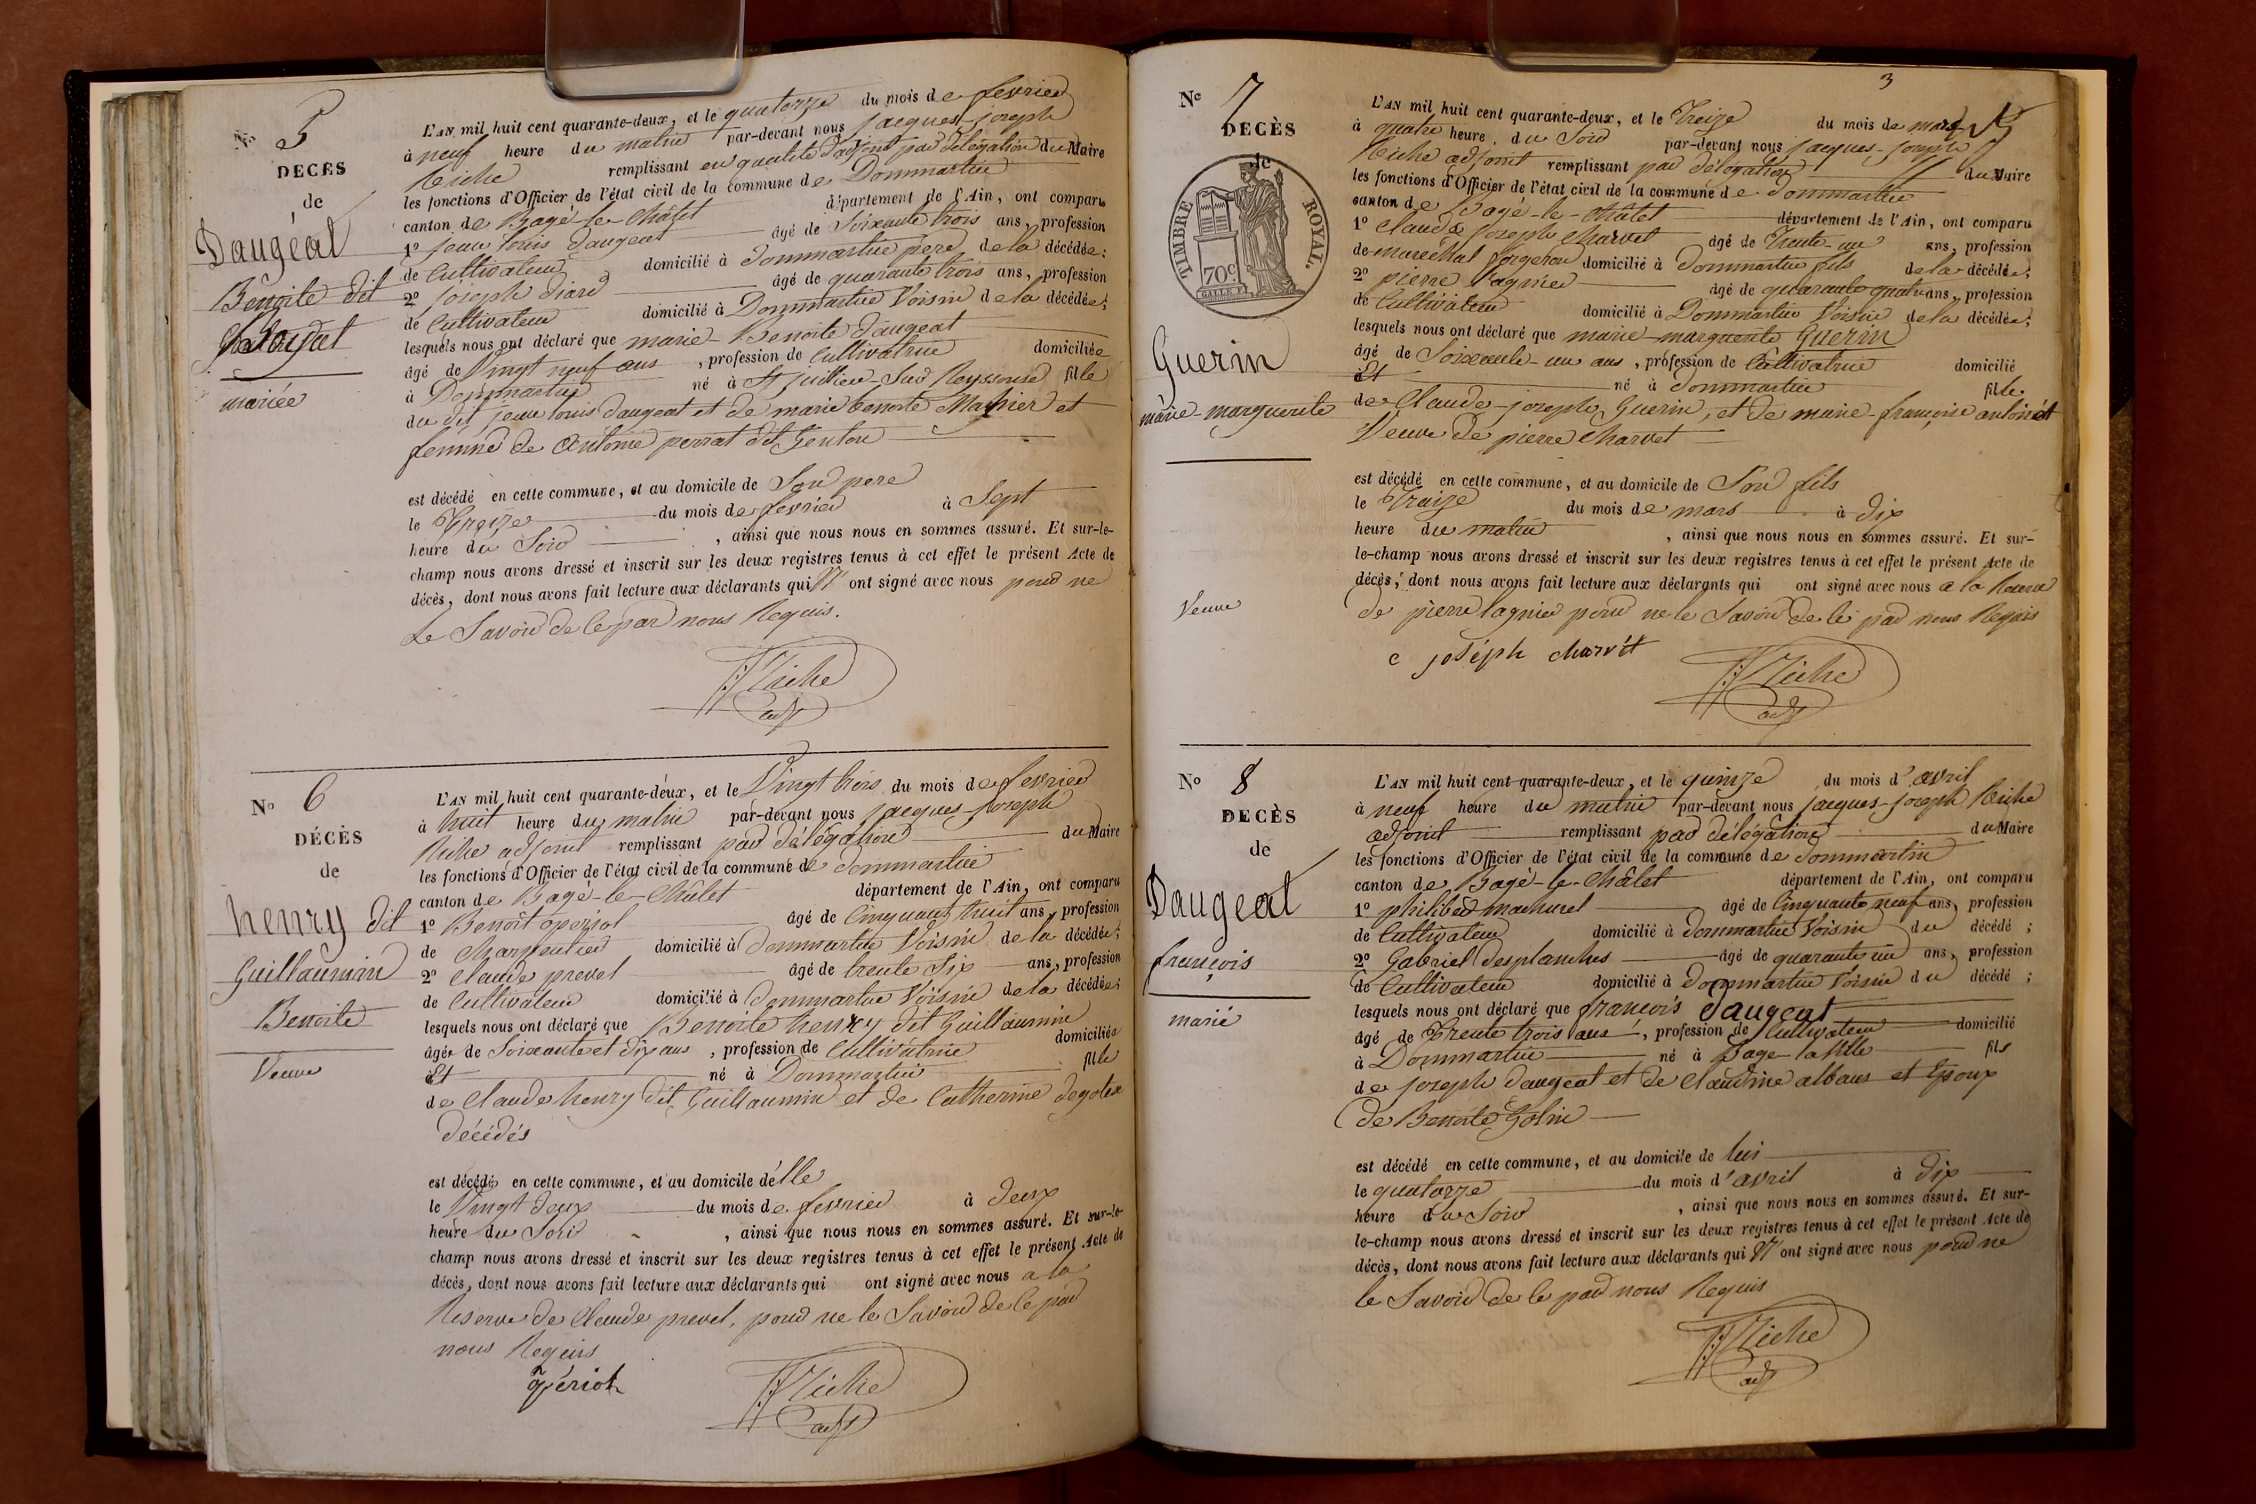 No 5
DECÈS
de
Daugeat
Benoite dit
mariée
L'AN mil huit cent quarante-deux, et le quatorze du mois de fevrier
à neuf heure du matin par-devant nous jacques-joseph
Riche remplissant en qualité d'adjoint par délégation du Maire
les fonctions d'Officier de l'état civil de la commune de Dommartin
canton de Bagé-le-Châtel département de l'Ain, ont comparu
1o jean louis daugeat âgé de Soixante trois ans, profession
de Cultivateur domicilié à Dommartin pere de la décédée;
2o joseph diard âgé de quarante trois ans, profession
de Cultivateur domicilié à Dommartin Voisin de la décédée;
lesquels nous ont déclaré que marie-Benoite daugeat
âgé de Vingt neuf ans, profession de Cultivatrice domiciliée
à Dommartin né à St julien-Sur Reyssouse fille
du dit jean louis daugeat et de marie benoite et
femme de antoine perrat dit Genton
est décédé en cette commune, et au domicile de Son pere
le Treize du mois de fevrier à Sept
heure du Soir, ainsi que nous nous en sommes assuré. Et sur-le-
champ nous avons dressé et inscrit sur les deux registres tenus à cet effet le présent Acte de
décès, dont nous avons fait lecture aux déclarants qui N' ont signé avec nous pour ne
Le Savoir de ce par nous Requis.
JJ Riche
adj
No 6
DÉCÈS
de
henry dit
Guillaumin
Benoite
Veuve
L'AN mil huit cent quarante-deux, et le Vingt trois du mois de fevrier
à huit heure du matin par-devant nous jacques-joseph
Riche adjoint remplissant par délégation du Maire
les fonctions d'Officier de l'état civil de la commune de Dommartin
canton de Bagé-le-Châtel département de l'Ain, ont comparu
1o Benoît âgé de Cinquante huit ans, profession
de Charpentier domicilié à Dommartin Voisin de la décédée;
2o Claude prevel âgé de trente Six ans, profession
de Cultivateur domicilié à Dommartin Voisin de la décédée;
lesquels nous ont déclaré que Benoite henry dit Guillaumin
âgée de Soixante et dix ans, profession de Cultivatrice domiciliée
à Et né à Dommartin fille
de Claude henry dit Guillaumin et de Catherine
décédés
est décédé en cette commune, et au domicile d'elle
le Vingt deux du mois de fevrier à deux
heure du Soir, ainsi que nous nous en sommes assuré. Et sur-le-
champ nous avons dressé et inscrit sur les deux registres tenus à cet effet le présent Acte de
décès, dont nous avons fait lecture aux déclarants qui ont signé avec nous a la
Reserve de Claude prevel, pour ne le Savoir de ce par
nous Requis
JJ Riche
adj
3
No 7
DECÈS
de
TIMBRE ROYAL.
70c
Guerin
marie-marguerite
Veuve
L'AN mil huit cent quarante-deux, et le Treize du mois de mars
à quatre heure du Soir par-devant nous jacques-joseph
Riche adjoint remplissant par délégation du Maire
les fonctions d'Officier de l'état civil de la commune de Dommartin
canton de Bagé-le-Châtel département de l'Ain, ont comparu
1o Claude joseph Charvet âgé de Trente-un ans, profession
de marechal forgeron domicilié à Dommartin fils de la décédée;
2o pierre Lagnier âgé de quarante quatre ans, profession
de Cultivateur domicilié à Dommartin Voisin de la décédée;
lesquels nous ont déclaré que marie-marguerite Guerin
âgé de Soixante-un ans, profession de Cultivatrice domicilié
à Et né à Dommartin fille
de Claude-joseph Guerin, et de marie-françoise antoinet
Veuve de pierre Charvet
est décédé en cette commune, et au domicile de Son fils
le Treize du mois de mars à dix
heure du matin, ainsi que nous nous en sommes assuré. Et sur-
le-champ nous avons dressé et inscrit sur les deux registres tenus à cet effet le présent Acte de
décès, dont nous avons fait lecture aux déclarants qui ont signé avec nous a la
de pierre lagnier pour ne le Savoir de ce par nous Requis
c joséph charvét
JJ Riche
adj
No 8
DECÈS
de
Daugeat
françois
marié
L'AN mil huit cent quarante-deux, et le quinze du mois d'avril
à neuf heure du matin par-devant nous jacques-joseph Riche
adjoint remplissant par délégation du Maire
les fonctions d'Officier de l'état civil de la commune de Dommartin
canton de Bagé-le-Châtel département de l'Ain, ont comparu
1o philibert machurel âgé de Cinquante neuf ans, profession
de Cultivateur domicilié à Dommartin Voisin du décédé;
2o Gabriel desplanches âgé de quarante un ans, profession
de Cultivateur domicilié à Dommartin Voisin du décédé;
lesquels nous ont déclaré que françois Daugeat
âgé de Trente trois ans, profession de Cultivateur domicilié
à Dommartin né à Bagé-la Ville fils
de joseph daugeat et de Claudine alban et Epoux
de Benoite
est décédé en cette commune, et au domicile de lui
le quatorze du mois d'avril à dix
heure du Soir, ainsi que nous nous en sommes assuré. Et sur-
le-champ nous avons dressé et inscrit sur les deux registres tenus à cet effet le présent Acte de
décès, dont nous avons fait lecture aux déclarants qui N' ont signé avec nous pour ne
le Savoir de ce par nous Requis
JJ Riche
adj